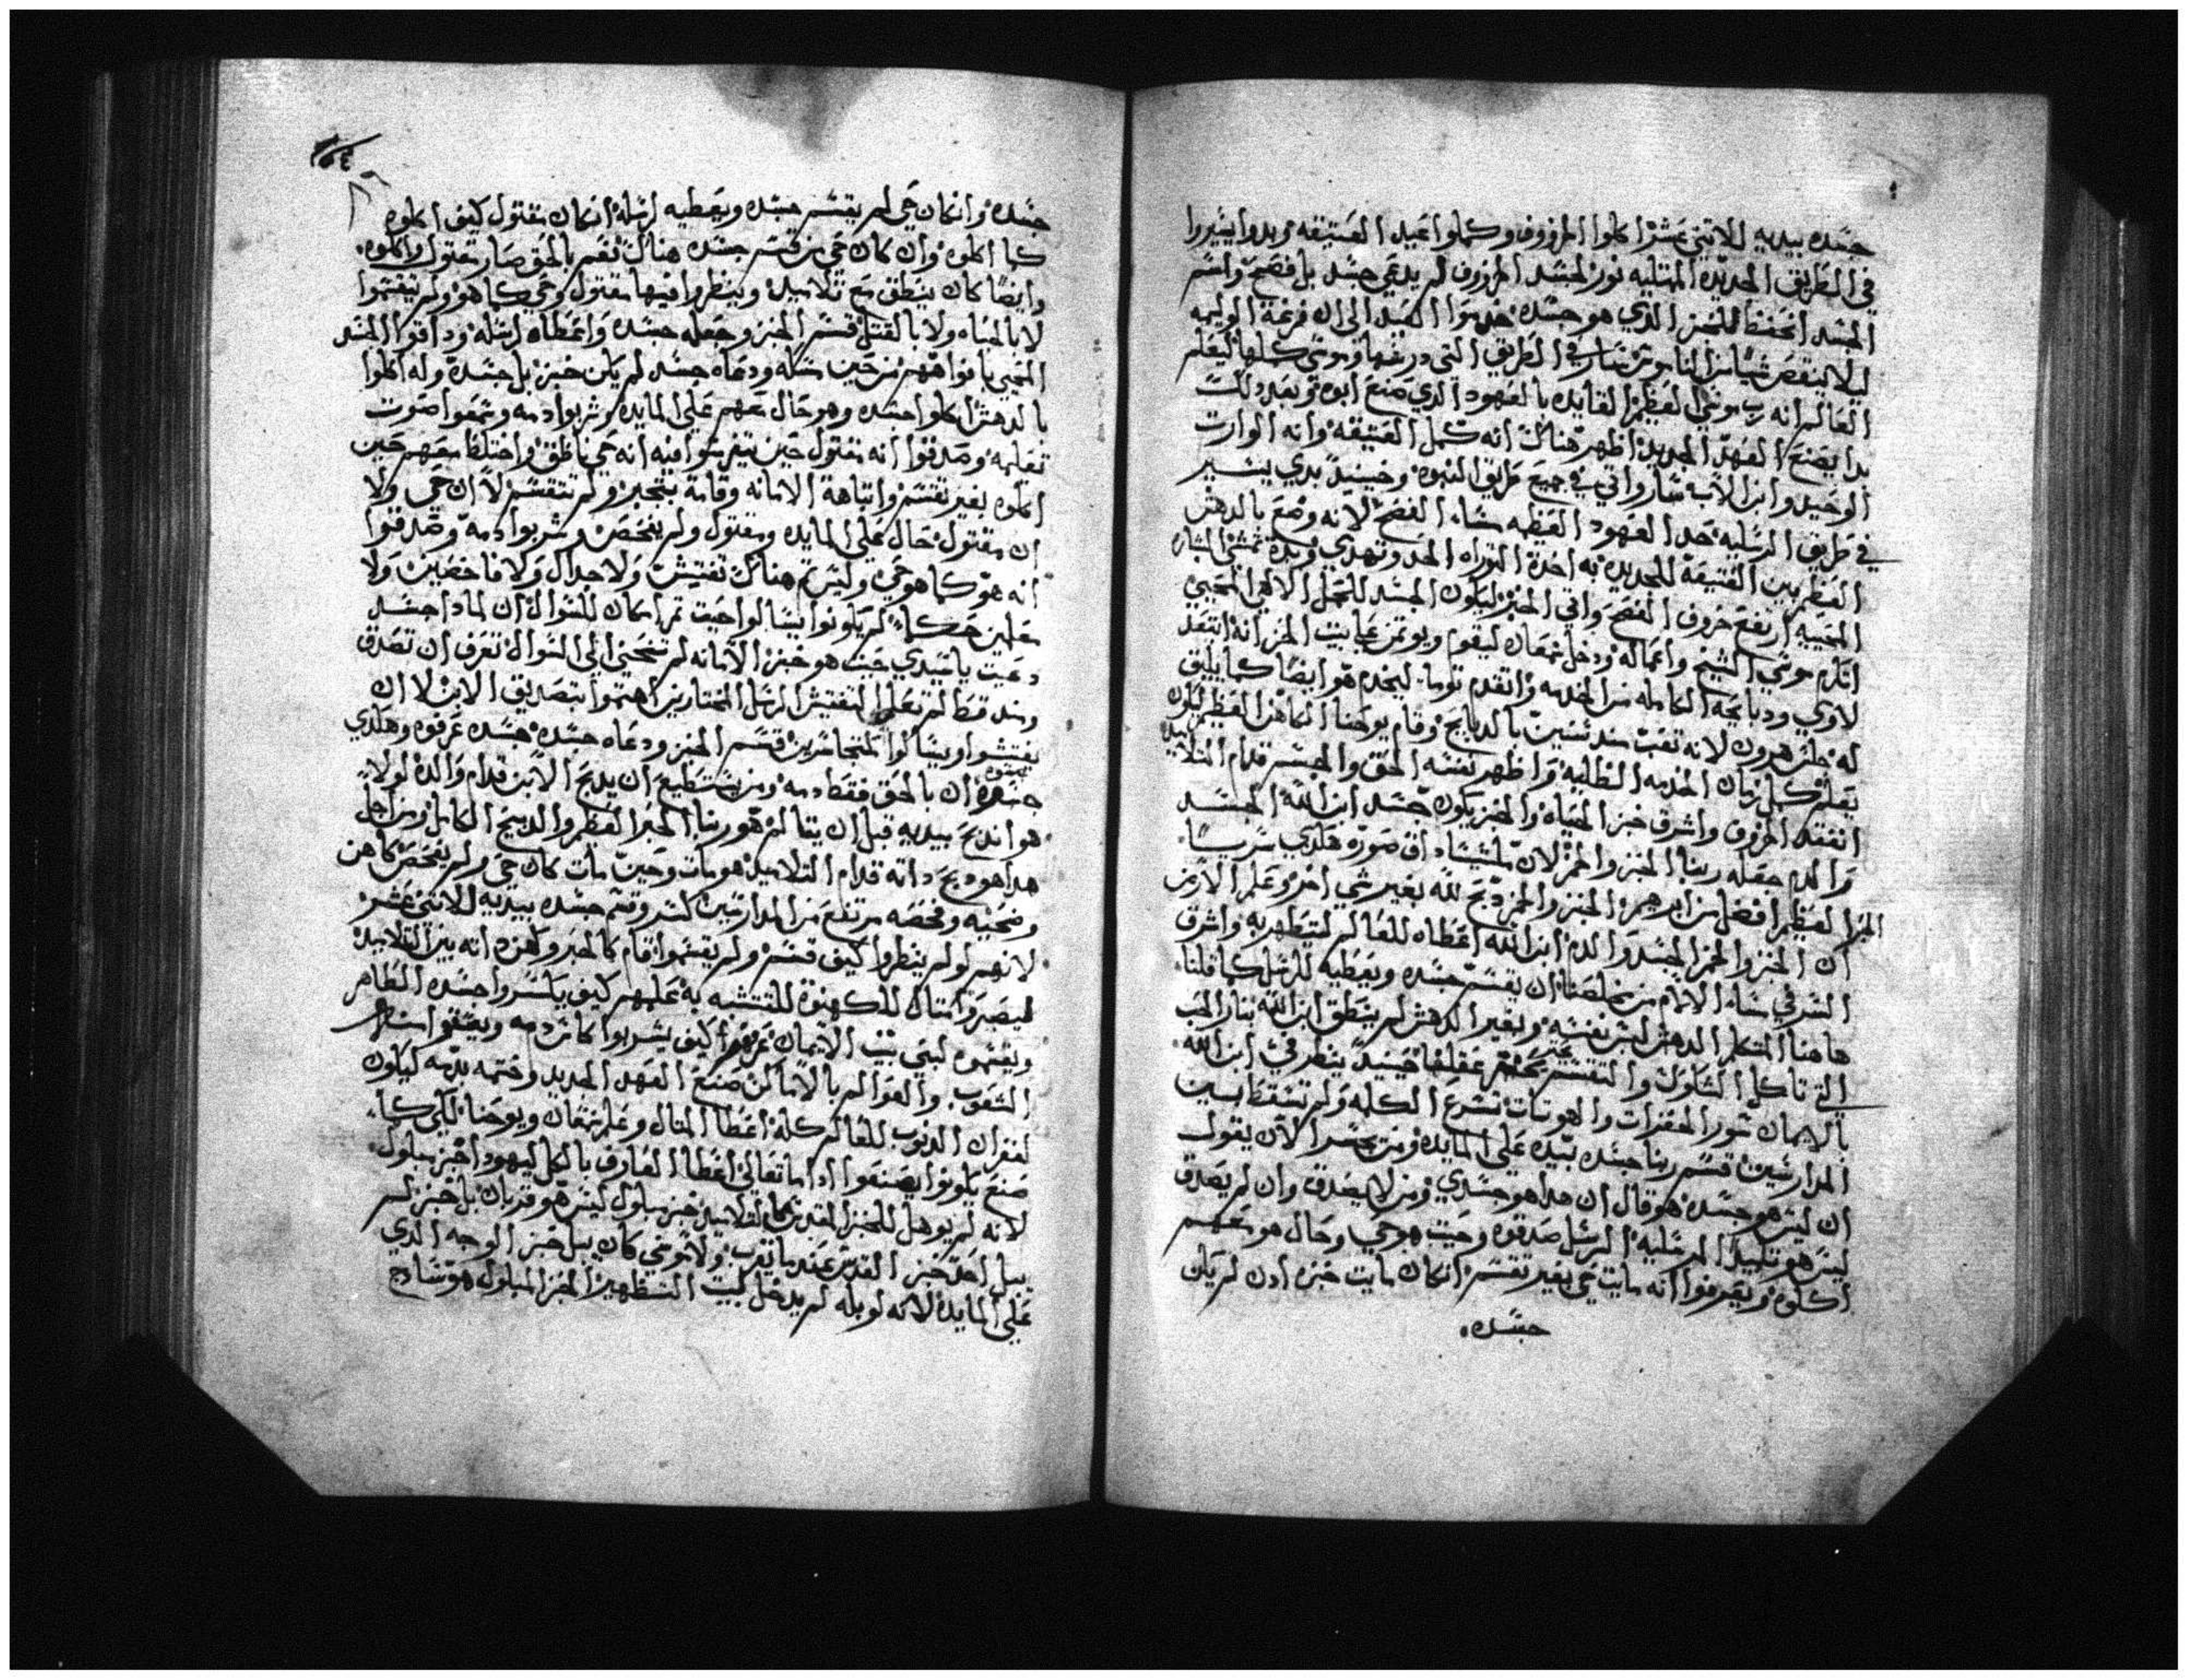 جسده بيديه للاتني عشر اكلوا الخروف وكملوا عيد العتيقه وبدوا يسيروا
في الطريق الجديده المتليه نور لجسد الخروف لم يدعي جسد بل فصح واسم
الجسد انحفظ للخبز الذي هو جسده العيد الى ان فرغة الوليمه
ليلا ينقص شيا من الناموس سار في الطريق التي درسها موسي كلها ليعلم
العالم انه رب موسي العظيم القايده بالعهود الذي صنع ابوه وبعد دلك
بدا يصنع العهد الجديد اظهر هناك انه كمل العتيقه وانه الوارت
الوحيد وابن الاب سار واتي في جميع طريق النبوه وحينيد بدي يسير
في طريق الرسليه حد العهود العظيمه مساء الفصح لانه وضع بالدهش
العظيم بين العتيقة للجديده به اخدة التوراه الحد وتهدي وبدة تمشي البشاره
المحييه ارتفع خروف الفصح واتي الخبز ليكون الجسد للحمل الالهي المحيي
اتكرم موسي الشيخ واعماله ودخل شمعان ليقوم ويوتمن علي بيت الخبز انه انتقد
لاوي ودبايحه الكامله من الخدمه وانقدم توما ليخدم هو ايضا كما يليق
له جلس هرون لانه تعب مند سنين بالدبايح وقام يوحنا الكاهن العظيم ليكون
يعلم كمل زمان الخدمه الظليه واظهر نفسه الحق والجسر قدام التلاميد
انفقد الخروف واشرق خبز الحياه والخبز يكون جسد ابن الله الجسد
والدم جعله ربنا الخبز والخمر لان صوره هكدي
الحبر العظيم افضل من ابرهيم الخبز والخمر دبح لله بغير شي اخر وعلم الارض
ان الخبز والخمر الجسد والدم ابن الله اعطاه للعالم لتتطهر به واشرق
السر في مساء الالام من مخلصنا ان يقسم جسده ويعطيه للرسل كما قلنا
هاهنا المتكلم الدهش لبس نفسه وبغير الدهش لم ينطق ابن الله بنار الحب
التي تاكل الشكوك والتفتيش عقلها حينيد ينظر في ابن الله
بالايمان ترع الكليه ولم تسقط بين
المدارسين قسم ربنا جسده بيده علي المايده ومن يجسر الان يقول
ان ليس هو جسده هو قال ان هدا هو جسدي ومن لا يصدق وان لم يصدق
ليس هو تلميد المرسليه الرسل صدقوه وحيت هو حي وحال هو معهم
اكلوه ويعرفوا انه مايت حي بغير تقسم انكان مايت خبزه ادن لم يكن
جسده
جسده وانكان حي لم يقسم جسده ويعطيه لرسله انكان مقتول كيف اكلوه
كما اكلوه وان كان حي من قسم جسده هناك نعم بالحق صار مقتول واكلوه
وايضا كان ينطق مع تلاميده وينظروا فيها مقتول وحي كما هو ولم ينقسموا
لا بالحياه ولا بالقتل قسم الخبز وجعله جسده واعطاه لرسله وداقوا الجسد
المحيي بافواههم من حين مسكه ودعاه جسد لم يكن خبز بل جسده وله اكلوا
بالدهش اكلوا جسده وهو حال معهم علي المايده وشربوا دمه وسمعوا صوت
تعليمه وصدقوا انه مقتول حين يتفرسوا فيه انه حي ناطق واختلط معهم حين
اكلوه بغير تقسم وانباهة الامانه وقامة بتحير ولم تتقسم لا ان حي ولا
ان مقتول حال علي المايده ومقتول ولم يفحص وشربوا دمه وصدقوا
انه هو كما هو حي وليس تم هناك تفتيش ولا جدال ولا فاحصين ولا
معلمين حكماء لم يكونوا يسالوا حيت تم امكان للسوال ان لمادا جسد
دعيت ياسيدي حيت هو خبز الامانه لم تنحني الي السوال تعرف ان تصدق
ومند قط لم تعلم التفتيش الرسل المختارين اهتموا بتصديق الابن لا ان
يفتشوا ويسالوا كمتجاسرين قسم الخبز ودعاه جسده جسده عرفوه وهكدي
ان بالحق فقط دمه ومن يستطيع ان يدبح الابن قدام والده لولا
هو اندبح بيديه قبل ان يتالم هو ربنا الحبر العظيم والدبيح الكامل ومن اجل
هدا هو دبح داته قدام التلاميد هو مات وحين مات كان حي ولم يفحص كاهن
وضحيه وفحصه مرتفع من المدارسين كسر وقسم جسده بيديه للاتني عشر
لانهم لو لم ينظروا كيف قسم ولم يقسموا قام كالحبر وكهن داته بين التلاميد
ليصير امتال للكهنوة للتتشبه به علمهم كيف ياكسروا جسده الطاهر
ويقسموه لبني بيت الايمان عرفهم كيف يشربوا كاس دمه ويعتقوا
الشعوب والعوالم بالاماكن صنع العهد الجديد وختمه بدمه ليكون
لغفران الدنوب للعالم كله اعطا المتال وعلم شمعان ويوحنا لكي كما
صنع يكونوا يصنعوا ادا ما تعالي اعطا العارف بالكل ليهودا خبز مبلول
لانه لم يوهل للخبز المقدس كما التلاميد خبز مبلول ليس هو قربان بل خبز لم
يبل احد خبز القدس عند ما يقرب ولا موسي كان يبل خبز الوجه الدي
علي المايده لانه لو بله لم يدخل لبيت التطهير الخبز المبلول هو سادج